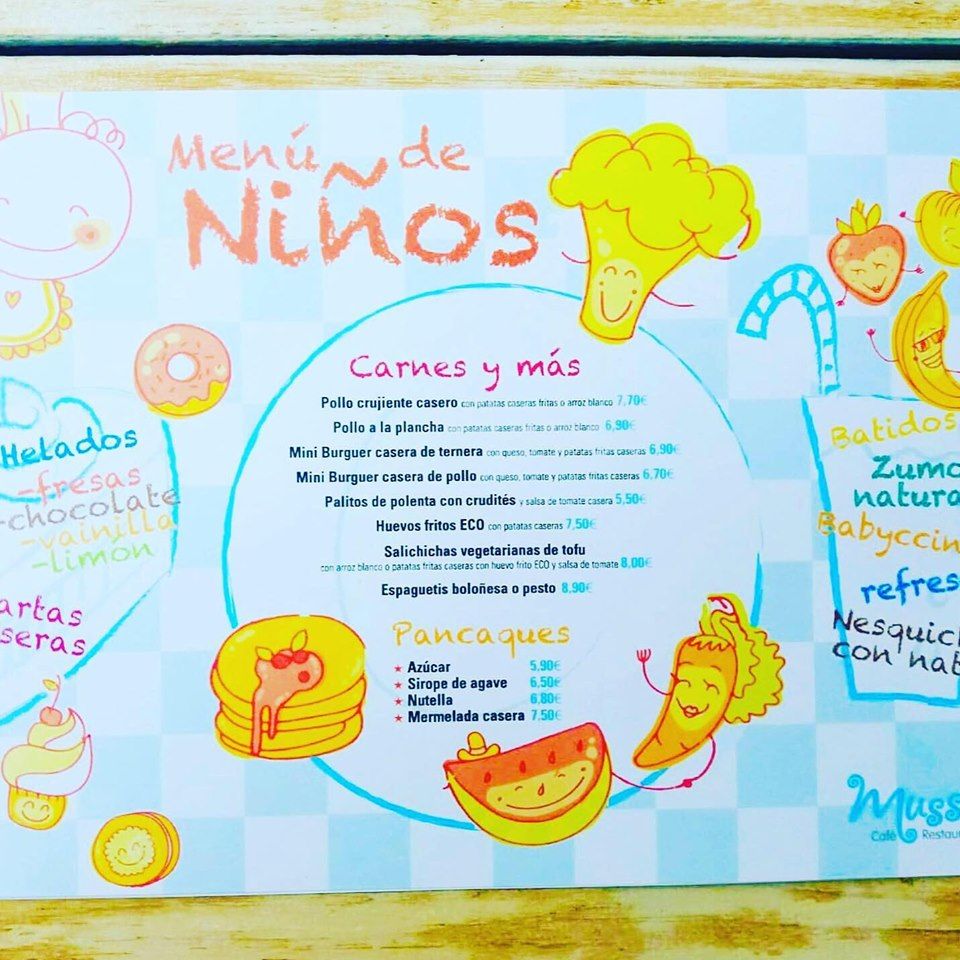 Menú de
Niños
Carnes y más
Pollo crujiente casero con patatas caseras fritas o arroz blanco 7,70€
Pollo a la plancha con patatas caseras fritas o arroz blanco 6,90€
Mini Burguer casera de ternera con queso, tomate y patatas fritas caseras 6,90€
Mini Burguer casera de pollo con queso, tomate y patatas fritas caseras 6,70€
Palitos de polenta con crudités y salsa de tomate casera 5,50€
Huevos fritos ECO con patatas caseras 7,50€
Salichichas vegetarianas de tofu
con arroz blanco o patatas fritas caseras con huevo frito ECO y salsa de tomate 8,00€
Espaguetis boloñesa o pesto 8,90€
Pancaques
Azúcar 5,90€
Sirope de agave 6,50€
Nutella 6,80€
Mermelada casera 7,50€
Helados
-fresas
-chocolate
-vainilla
-limón
artas
seras
Batidos
Zumo
natura
Babyccin
refres
Nesquic
con nat
Muss
Café Restau